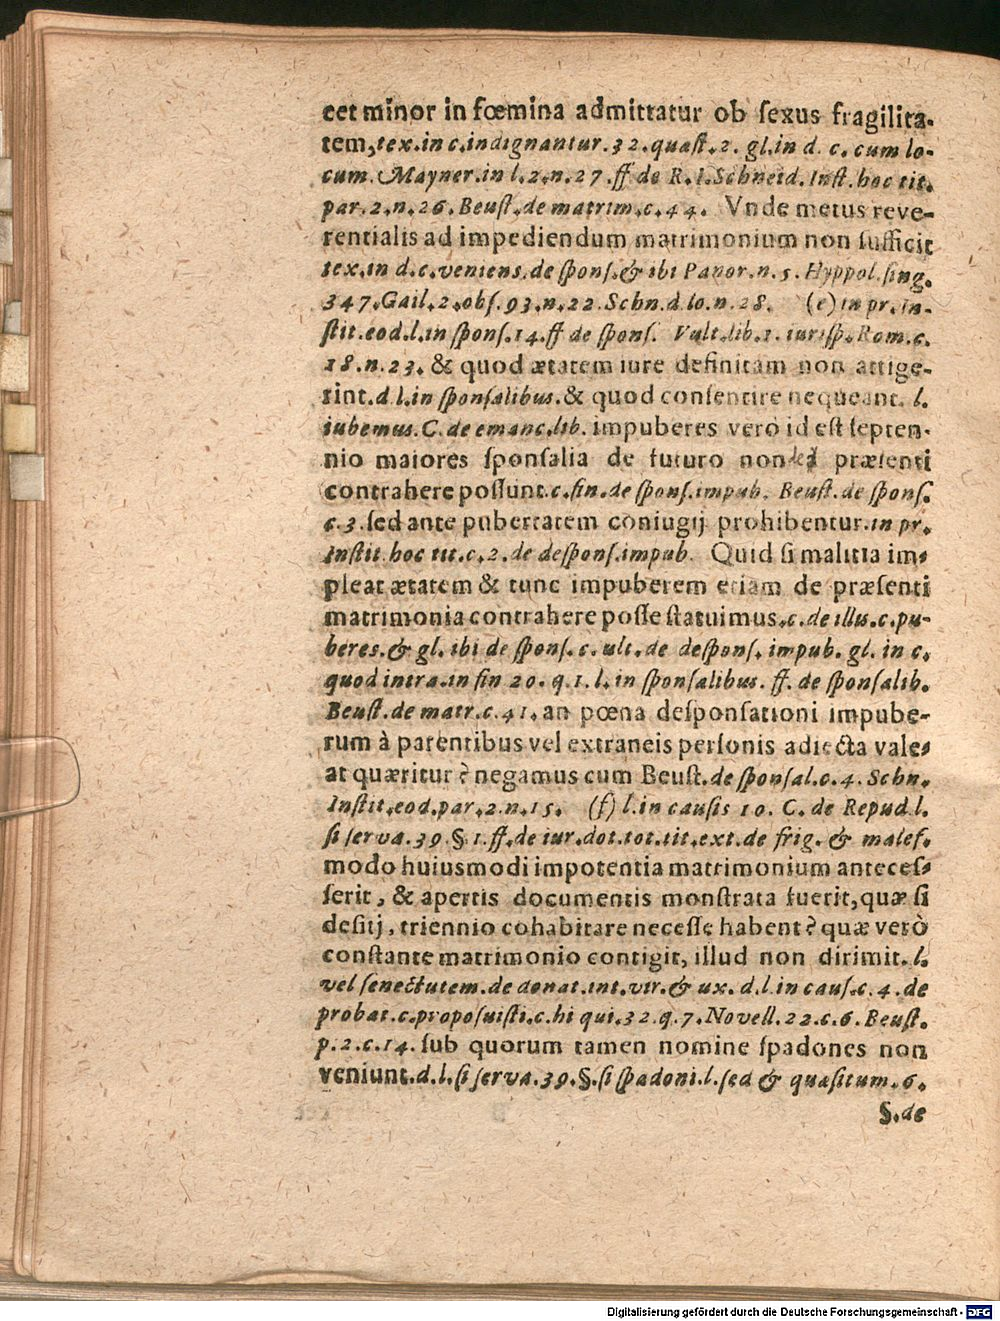 cet minor in fœmina admittatur ob ſexus fragilita-
tem, tex. in c. indignantur. 32. quæſt. 2. gl. in d. c. cum lo-
cum. Mayner. in l. 2. n. 27. ff de R. I. Schneid. Inſt. hoc tit.
par. 2. n. 26. Beuſt. de matrim. c. 44. Vnde metus reve-
rentialis ad impediendum matrimonium non ſufficit
tex. in d. c. veniens. de ſponſ. & ibi Panor. n. 5. Hyppol. ſing.
347. Gail. 2. obſ. 93. n. 22. Schn. d. lo. n. 28. (e) in pr. In-
ſtit. eod. l. in ſponſ. 14. ff de ſponſ. Vult. lib. 1. iuriſp. Rom. c.
18. n. 23. & quod ætatem iure definitam non attige-
rint. d. l. in ſponſalibus. & quod conſentire nequeant. l.
iubemus. C. de emanc. lib. impuberes verò id eſt ſepten-
nio maiores ſponſalia de futuro non præſenti
contrahere poſſunt. c. fin. de ſponſ. impub. Beuſt. de ſponſ.
c. 3. ſed ante pubertatem coniugij prohibentur. in pr.
Inſtit hoc tit. c. 2. de deſponſ. impub. Quid ſi malitia im-
pleat ætatem & tunc impuberem etiam de præſenti
matrimonia contrahere poſſe ſtatuimus. c. de illus. c. pu-
beres. & gl. ibi de ſponſ. c. ult. de deſponſ. impub. gl. in c.
quod intra. in fin 20. q. 1. l. in ſponſalibus. ff. de ſponſalib.
Beuſt. de matr. c. 41. an pœna deſponſationi impube-
rum à parentibus vel extraneis perſonis adiecta vale-
at quæritur? negamus cum Beuſt. de ſponſal. c. 4. Schn.
Inſtit. eod. par. 2. n. 15. (f) l. in cauſis 10. C. de Repud. l.
ſi ſerva. 39. §. 1. ff. de iur. dot. tot. tit. ext. de frig. & malef.
modo huiusmodi impotentia matrimonium anteceſ-
ſerit, & apertis documentis monſtrata fuerit, quæ ſi
deſitj, triennio cohabitare neceſſe habent? quæ verò
conſtante matrimonio contigit, illud non dirimit. l.
vel ſenectutem. de donat. int. vir. & ux. d. l. in cauſ. c. 4. de
probat. c. propoſuiſti. c. hi qui. 32. q. 7. Novell. 22. c. 6. Beuſt.
p. 2. c. 14. ſub quorum tamen nomine ſpadones non
veniunt. d. l. ſi ſerva. 39. §. ſi ſpadoni. l. ſed & quæſitum. 6.
§. de
Digitalisierung gefördert durch die Deutsche Forschungsgemeinschaft - DFG